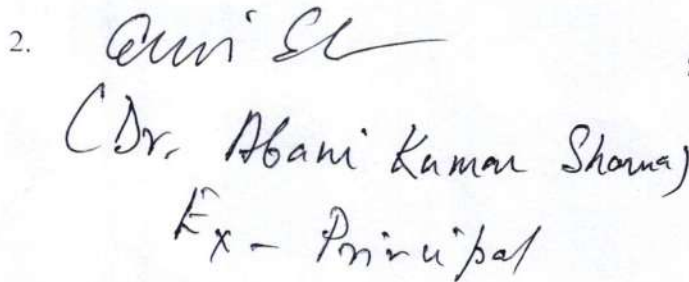 2.
(Dr. Abani Kumar Sharma)
Ex - Principal